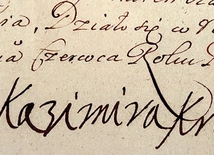 ia, Działo się w
Czerwca Roku
Kazimira Kr